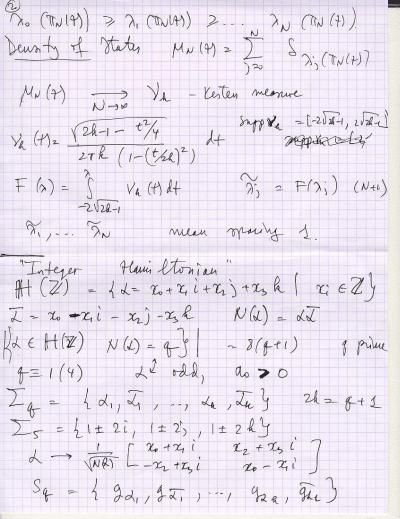 ②
λ₀(π_N(z)) ≥ λ₁(π_N(z)) ≥ .... λ_N(π_N(z))
Density of States μ_N(z) = Σ_{j=0}^{N} δ_{λ_j(π_N(z))}
μ_N(z) →_{N→∞} ν_k - Kesten measure
ν_k(t) = √(2k-1-t²/4) / (2πk(1-(t/2k)²)) dt supp ν_k = [-2√(2k-1), 2√(2k-1)]
F(λ) = ∫_{-2√(2k-1)}^{λ} ν_k(t) dt λ̃_j = F(λ_j) (N+1)
λ̃₁, ... λ̃_N mean spacing 1.
"Integer Hamiltonian"
ℍ(ℤ) = {α = x₀ + x₁i + x₂j + x₃k | x_i ∈ ℤ}
ᾱ = x₀ - x₁i - x₂j - x₃k N(α) = αᾱ
|{α ∈ ℍ(ℤ) N(α) = q}| = 8(q+1) q prime
q ≡ 1(4) α odd, a₀ > 0
Σ_q = {α₁, ᾱ₁, ..., α_k, ᾱ_k} 2k = q+1
Σ₅ = {1±2i, 1±2j, 1±2k}
α → 1/√N(α) [x₀+x₁i x₂+x₃i
-x₂+x₃i x₀-x₁i]
S_q = {g_{α₁}, g_{ᾱ₁}, ..., g_{α_k}, g_{ᾱ_k}}